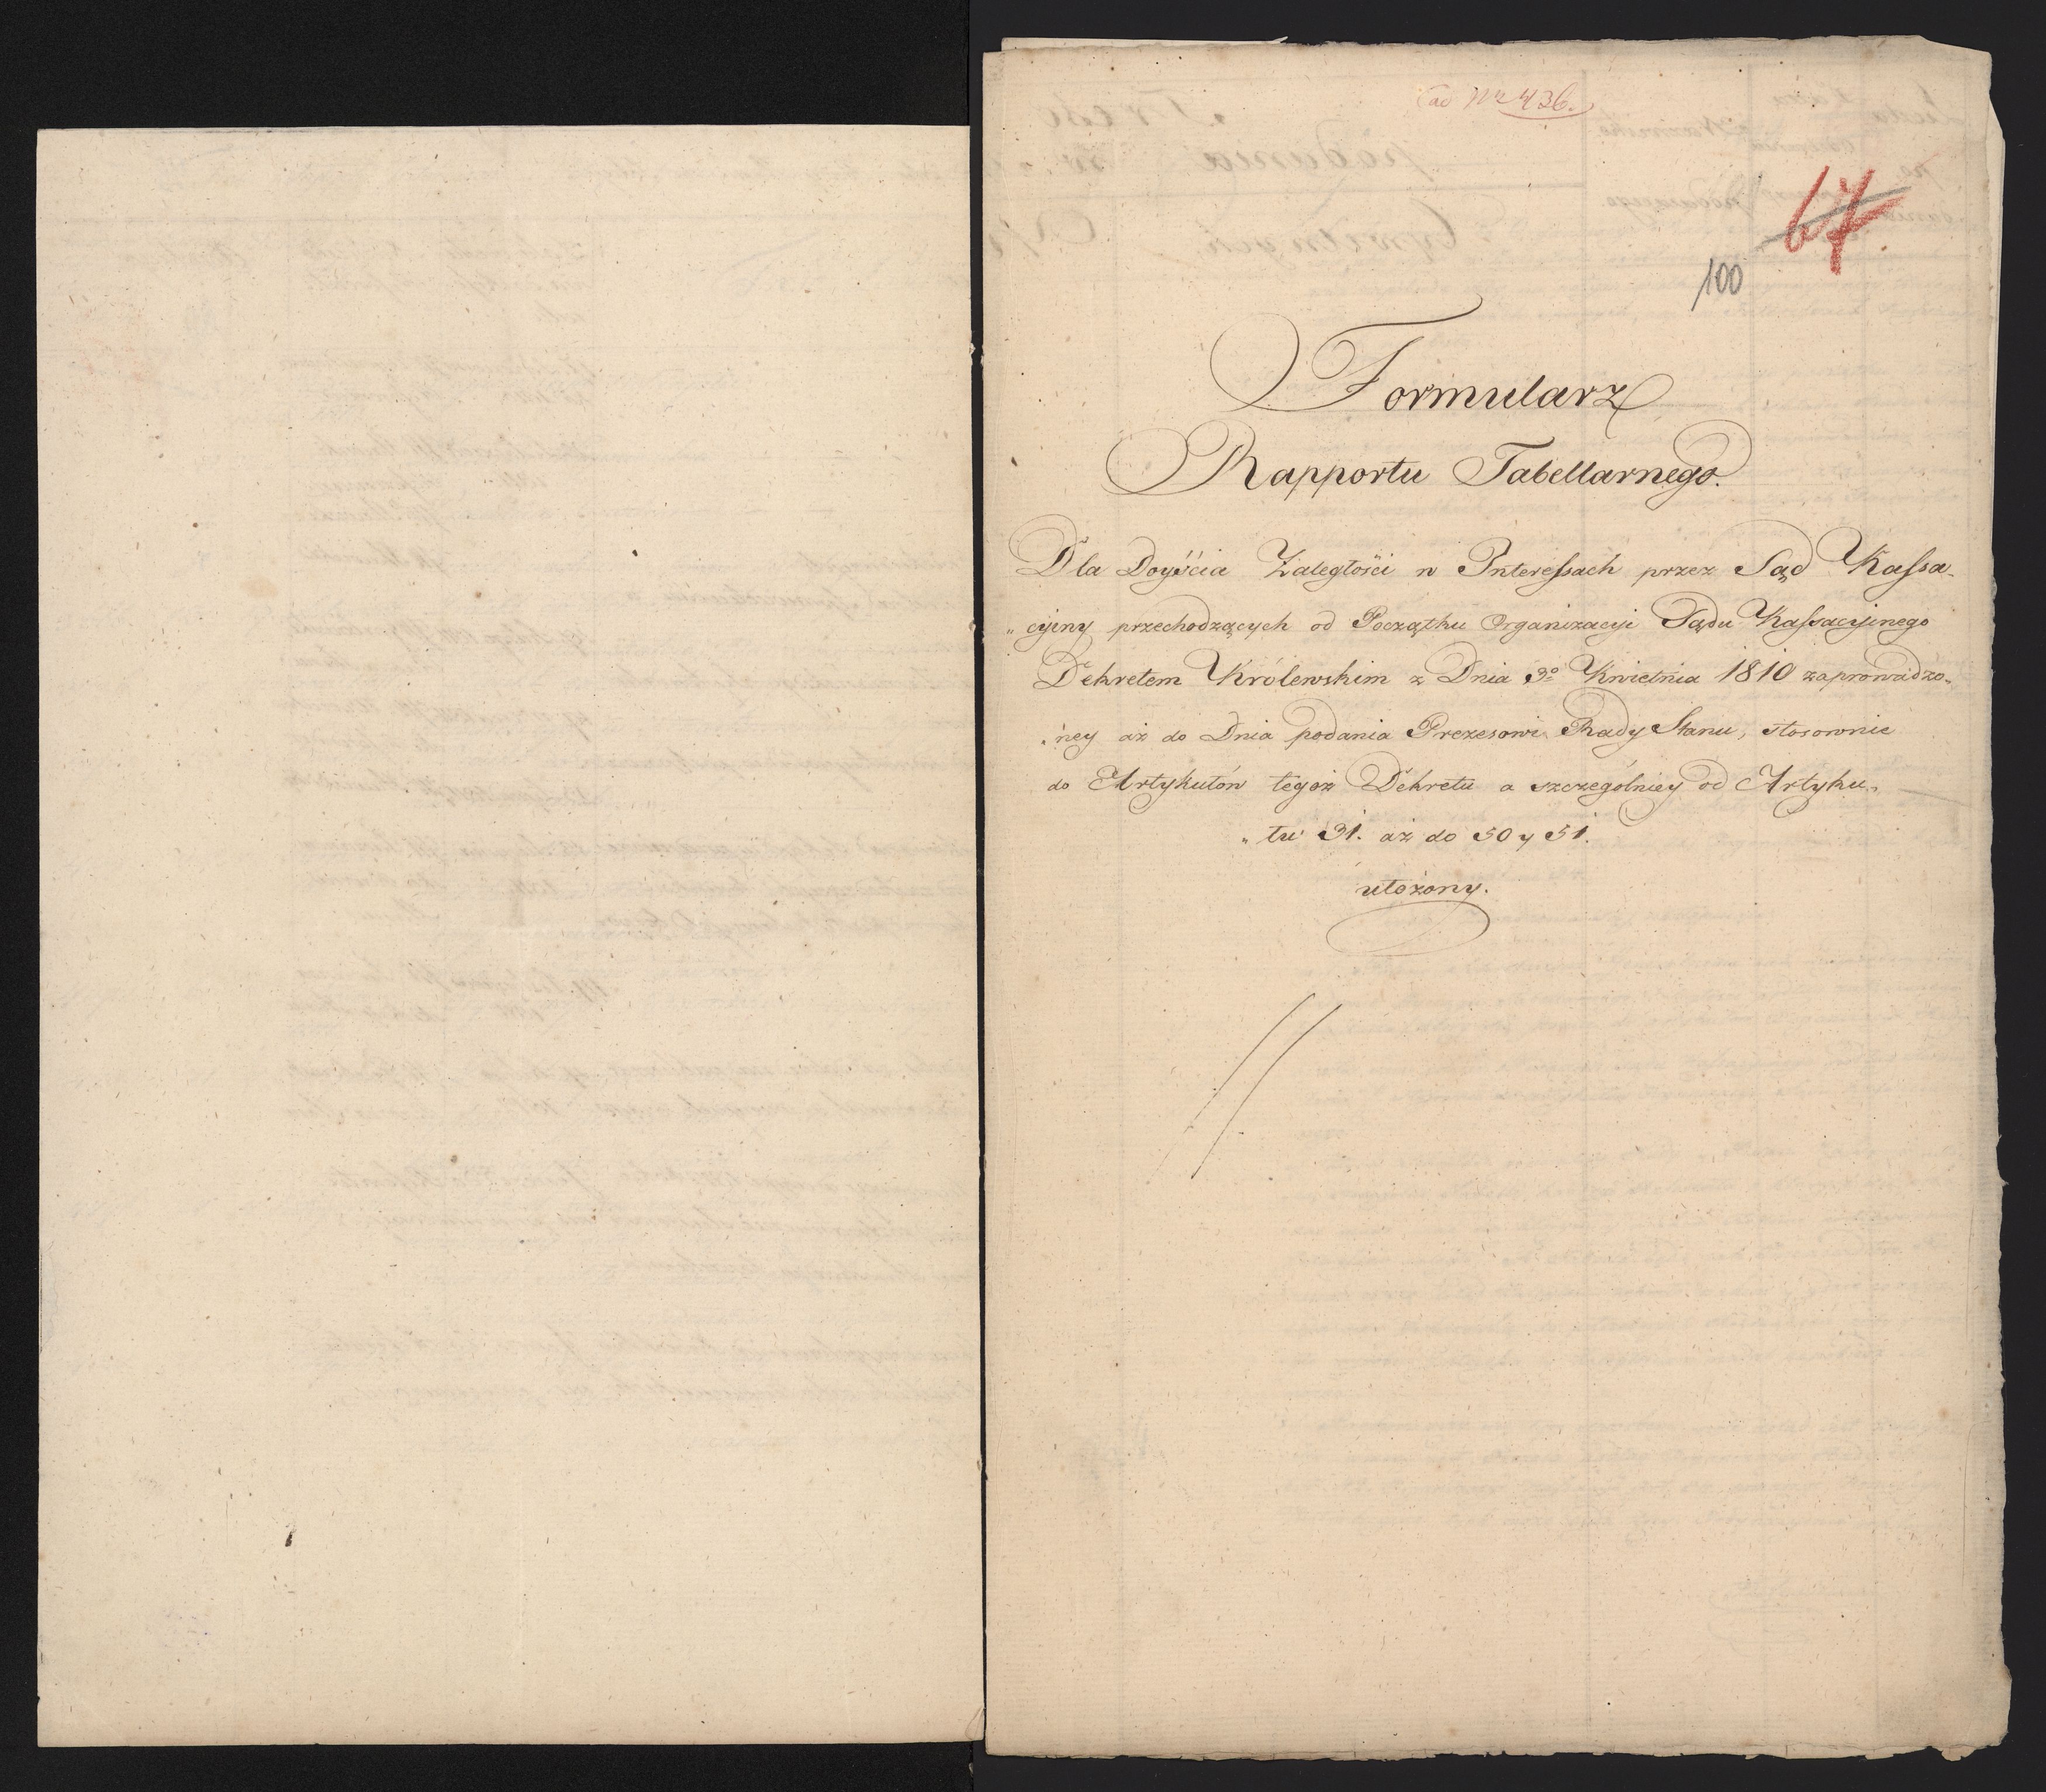 ad Nr 436.
67
100
Formularz
Rapportu Tabellarnego.
Dla Doyścia Zaległości w Interessach przez Sąd Kassa-
„cyiny przechodzących od Początku Organizacyi Sądu Kassacyinego
Dekretem Królewskim z Dnia 3º Kwietnia 1810 zaprowadzo„
„ney aż do Dnia podania Prezesowi Rady Stanu, stosownie
do Artykułów tegoż Dekretu a szczególniey od Artyku„
„łu 31. aż do 50 y 51.
ułożony.